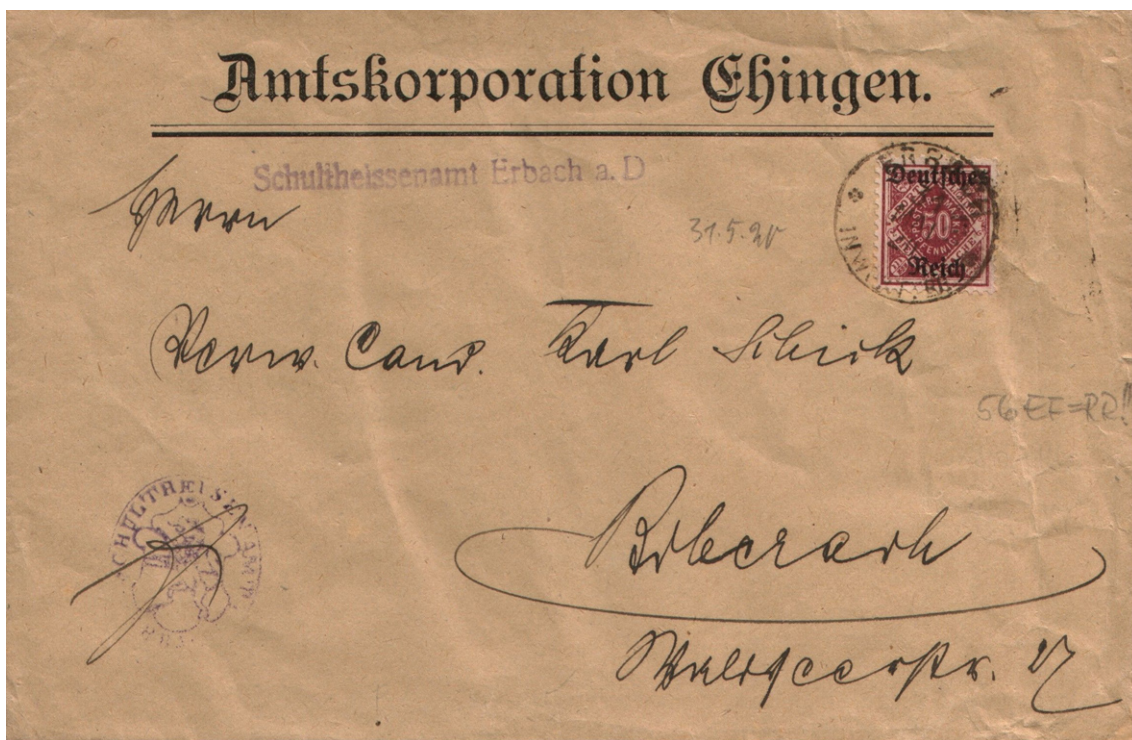 Amtskorporation Ehingen.
Schultheissenamt Erbach a. D
Herrn
31.5.20
Deutsches
50
PFENNIG
Reich
Verw. Cand. Karl Schick
56 EF=RR!!
SCHULTHEISSENAMT
Biberach